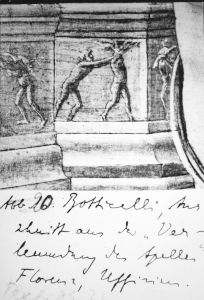 Abb. 20. Botticelli, Aus-
schnitt aus der „Ver-
leumdung des Apelles"
Florenz, Uffizien.